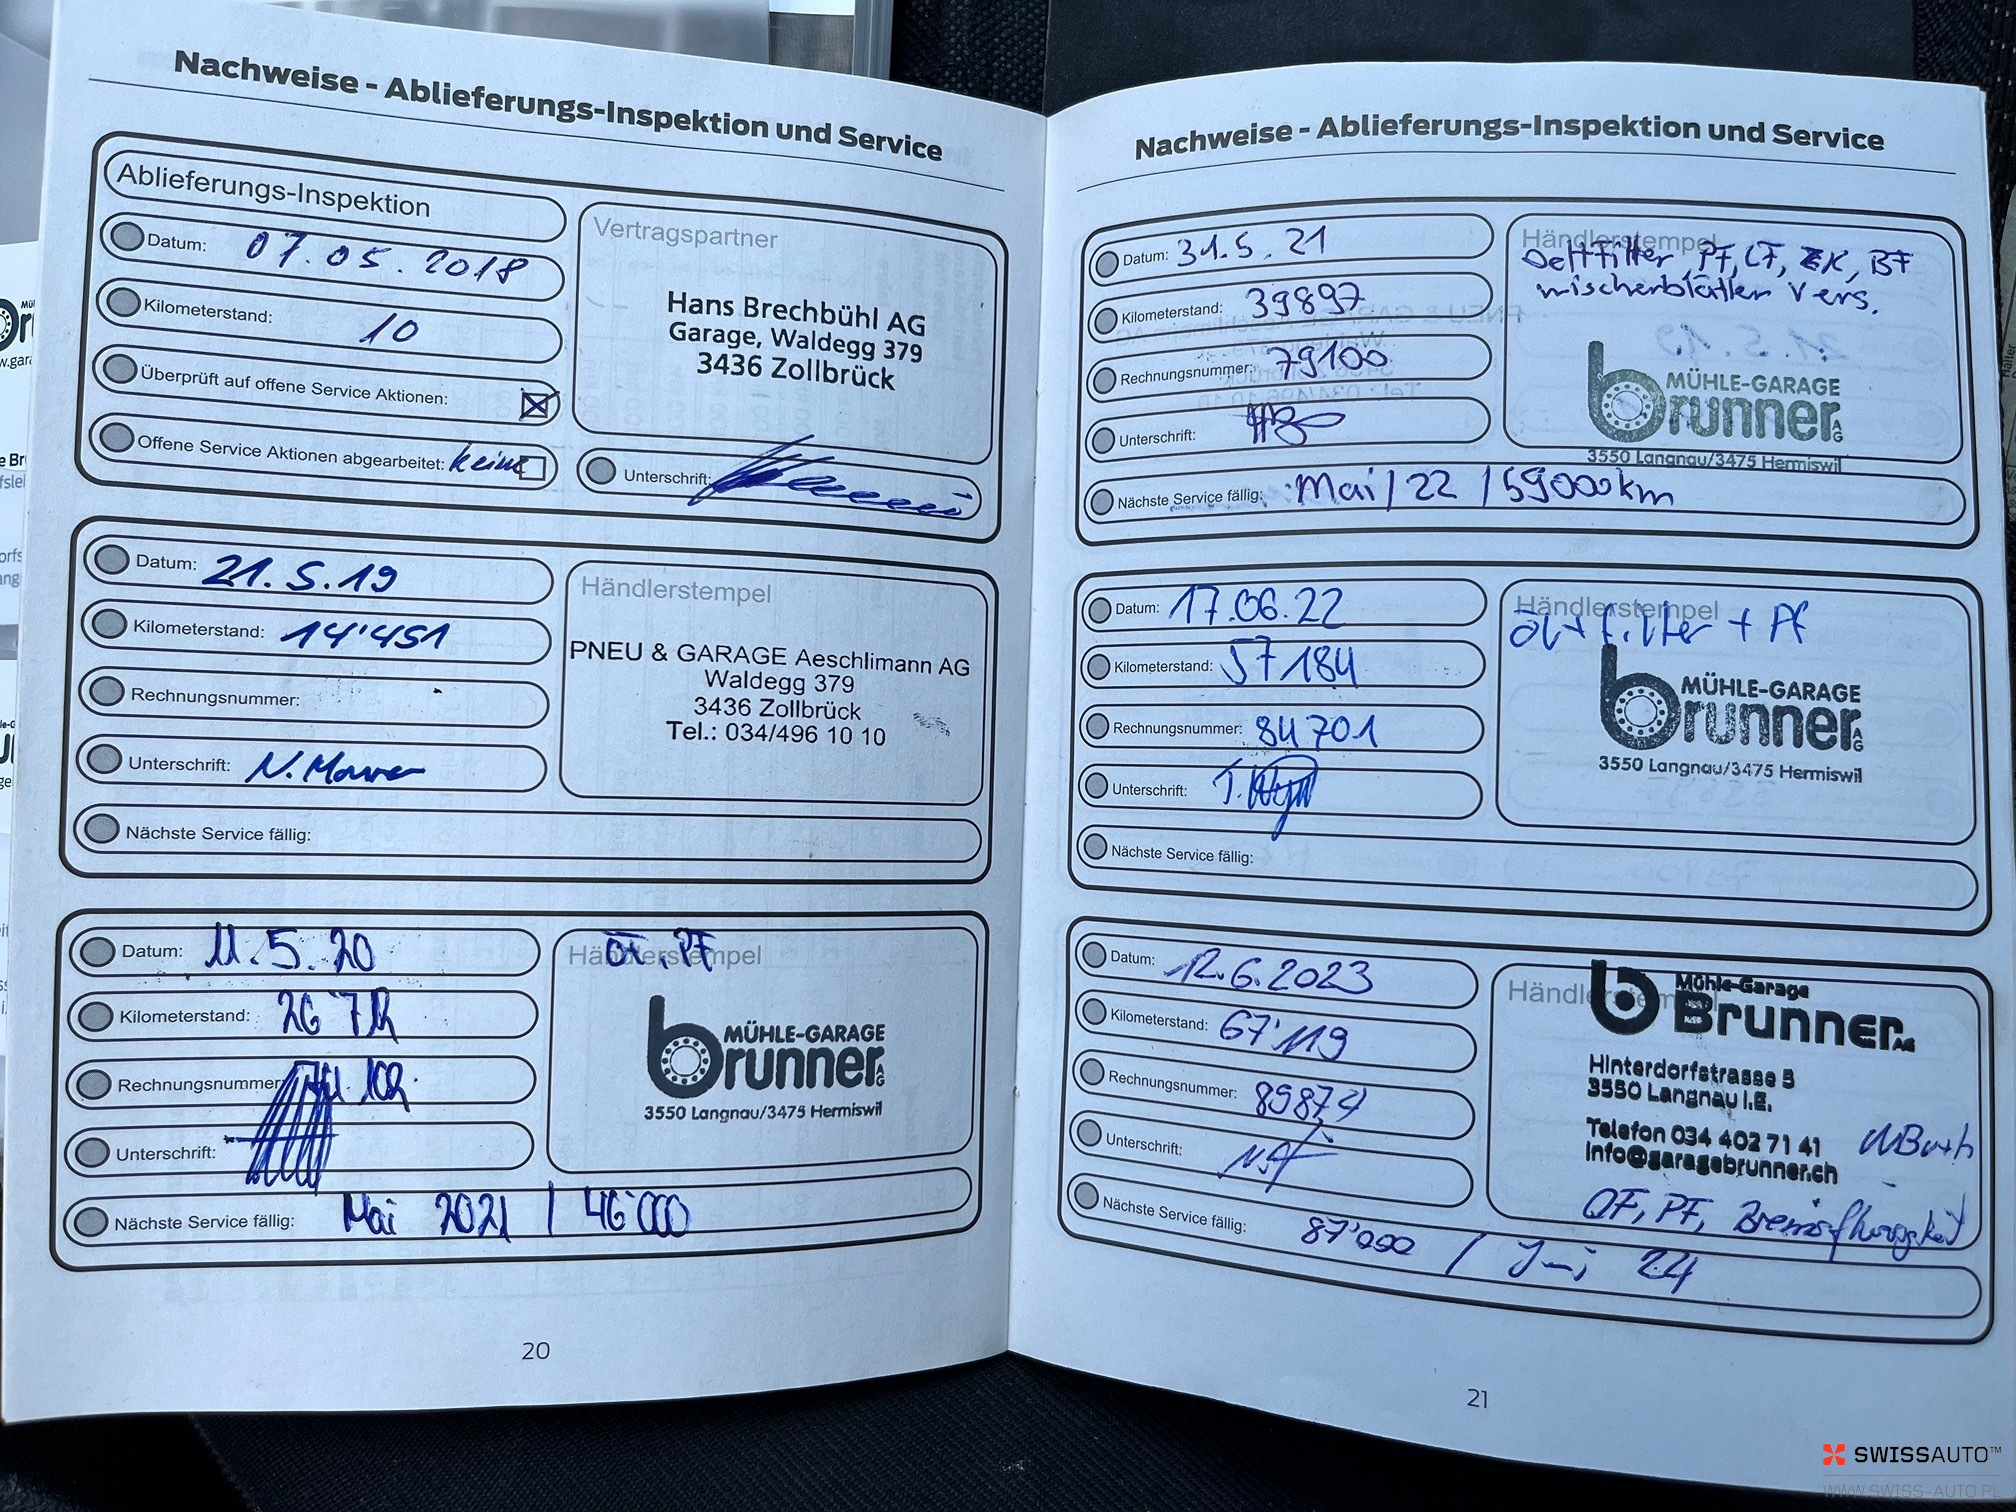 Nachweise - Ablieferungs-Inspektion und Service
Ablieferungs-Inspektion
Datum: 07.05.2018
Kilometerstand: 10
Überprüft auf offene Service Aktionen:
Offene Service Aktionen abgearbeitet: keine
Vertragspartner
Hans Brechbühl AG
Garage, Waldegg 379
3436 Zollbrück
Unterschrift:
Datum: 21.5.19
Kilometerstand: 14'451
Rechnungsnummer:
Unterschrift:
Nächste Service fällig:
Händlerstempel
PNEU & GARAGE Aeschlimann AG
Waldegg 379
3436 Zollbrück
Tel.: 034/496 10 10
Datum: 11.5.20
Kilometerstand:
Rechnungsnummer
Unterschrift:
Nächste Service fällig: Mai 2021 / 46'000
Händlerstempel
PF
MÜHLE-GARAGE
brunner AG
3550 Langnau/3475 Hermiswil
20
Nachweise - Ablieferungs-Inspektion und Service
Datum: 31.5.21
Kilometerstand: 39897
Rechnungsnummer: 79100
Unterschrift:
Nächste Service fällig: Mai / 22 / 59000km
Händlerstempel
PF, LF, BF
vers.
MÜHLE-GARAGE
brunner AG
3550 Langnau/3475 Hermiswil
Datum: 17.06.22
Kilometerstand: 57184
Rechnungsnummer: 84701
Unterschrift:
Nächste Service fällig:
Händlerstempel
öl + filter + Pf
MÜHLE-GARAGE
brunner AG
3550 Langnau/3475 Hermiswil
Datum: 12.6.2023
Kilometerstand: 67'119
Rechnungsnummer: 89874
Unterschrift:
Nächste Service fällig: 87'000 / Juni 24
Händlerstempel
Mühle-Garage
Brunner AG
Hinterdorfstrasse 5
3550 Langnau i.E.
Telefon 034 402 71 41
info@garagebrunner.ch
OF, PF, Bremsflüssigkeit
21
SWISSAUTO™
WWW.SWISS-AUTO.PL